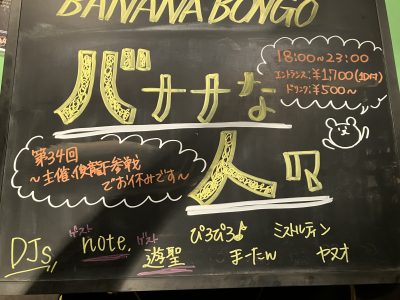 BANANA BONGO
バナナな
人々
18:00~23:00
エントランス:¥1700(1D付)
ドリンク:¥500~
第34回
~主催、俊龍F参戦
でお休みです~
DJs,
ゲスト
note,
ゲスト
遊聖
ぴろぴろ♪
まーたん
ミストルティン
ヤヌオ